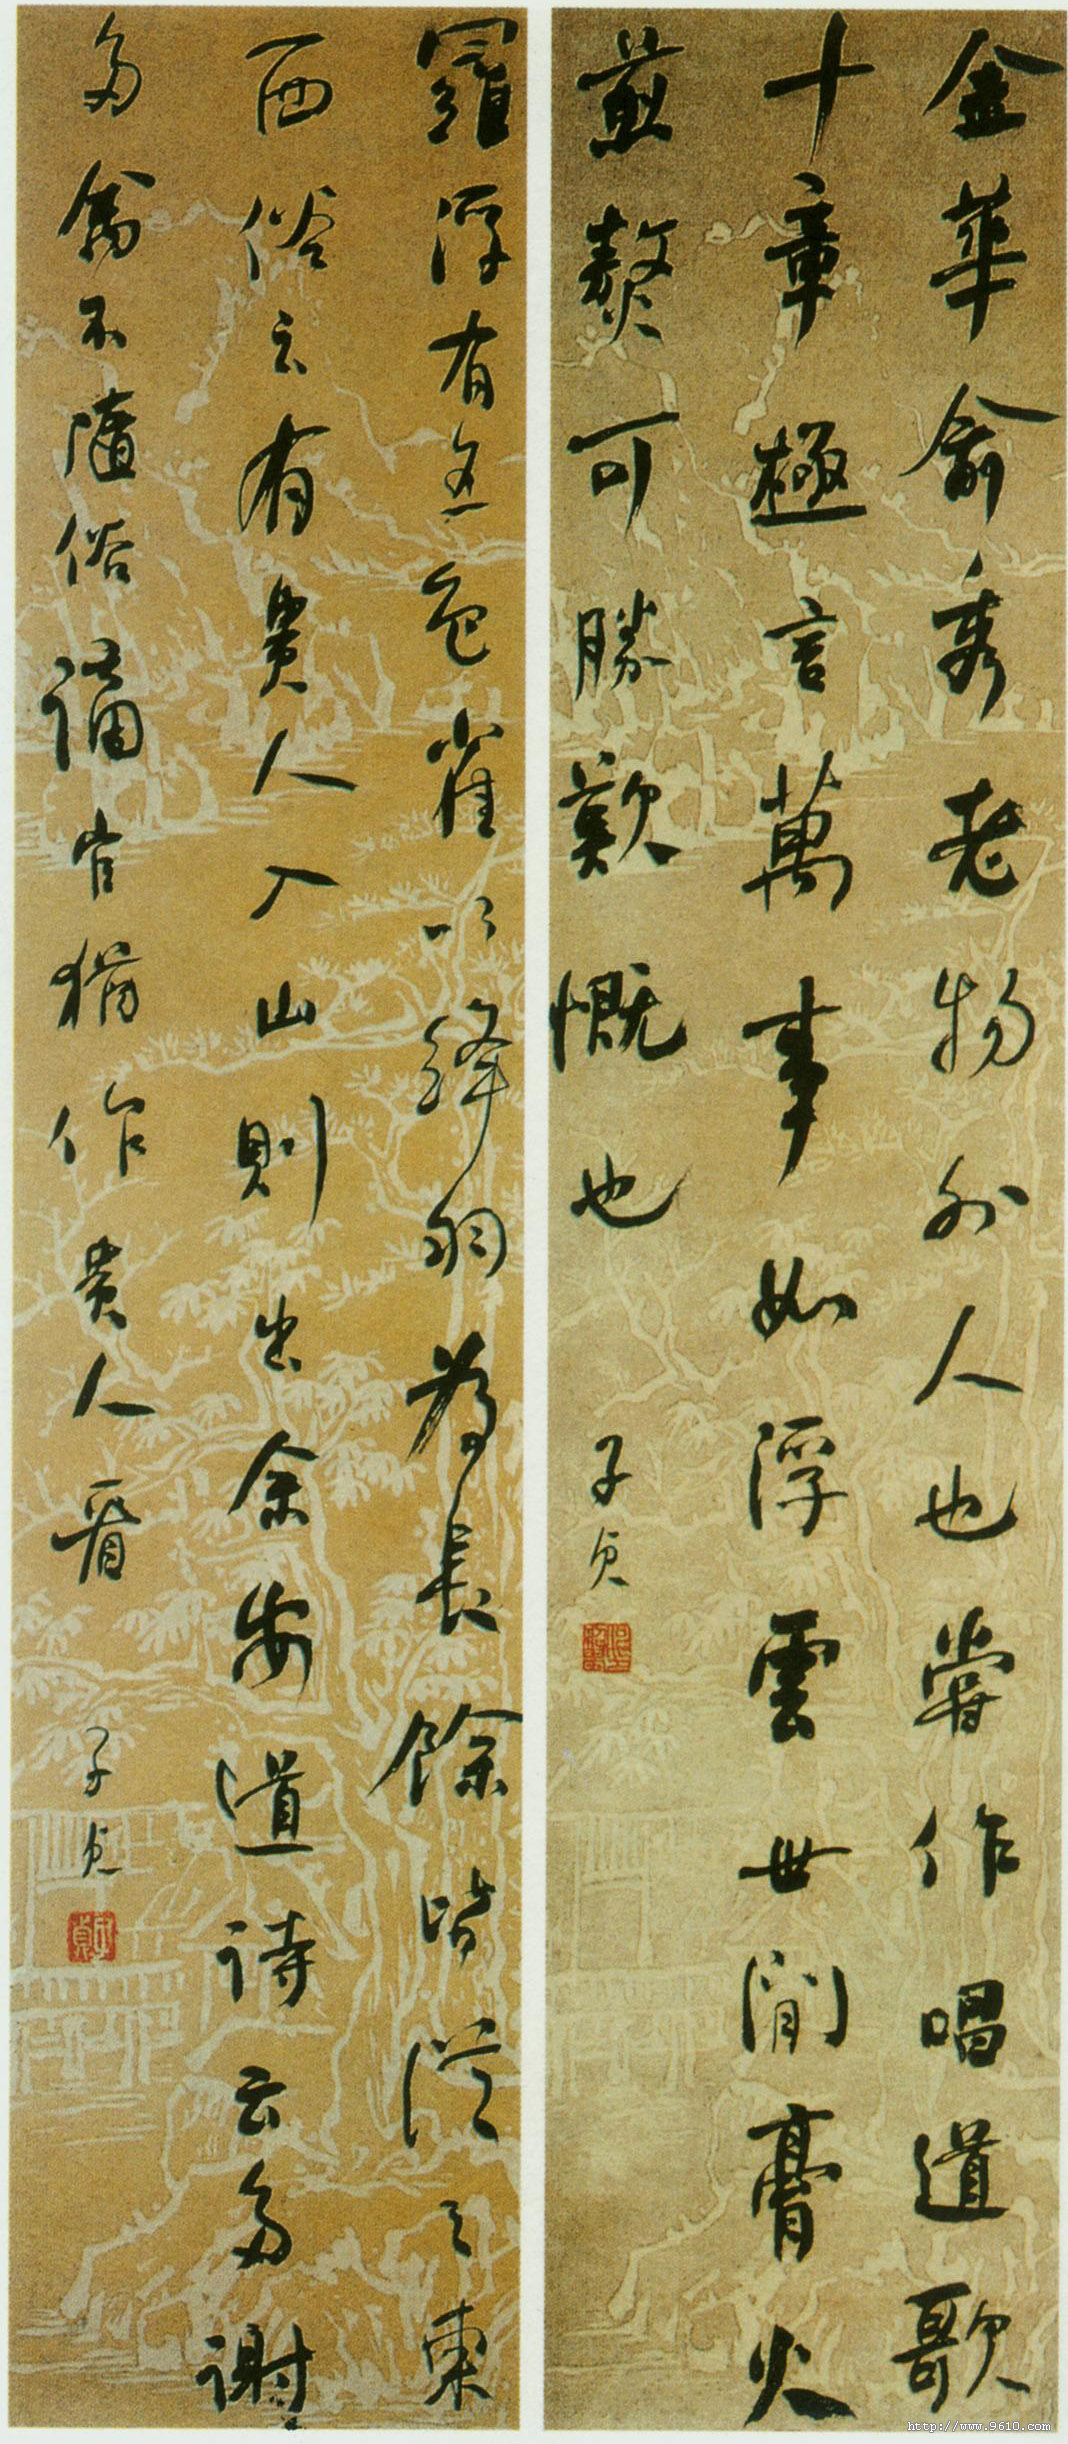 金華俞秀老物外人也嘗作唱道歌
十章極言萬事如浮雲世間膏火
煎熬可勝歎慨也
子貞
羅浮有五色雀以絳羽為長餘皆從之東
西俗云有貴人入山則出余安道詩云多謝
多禽不隨俗謂官猶作貴人看
子貞
http://www.9610.com